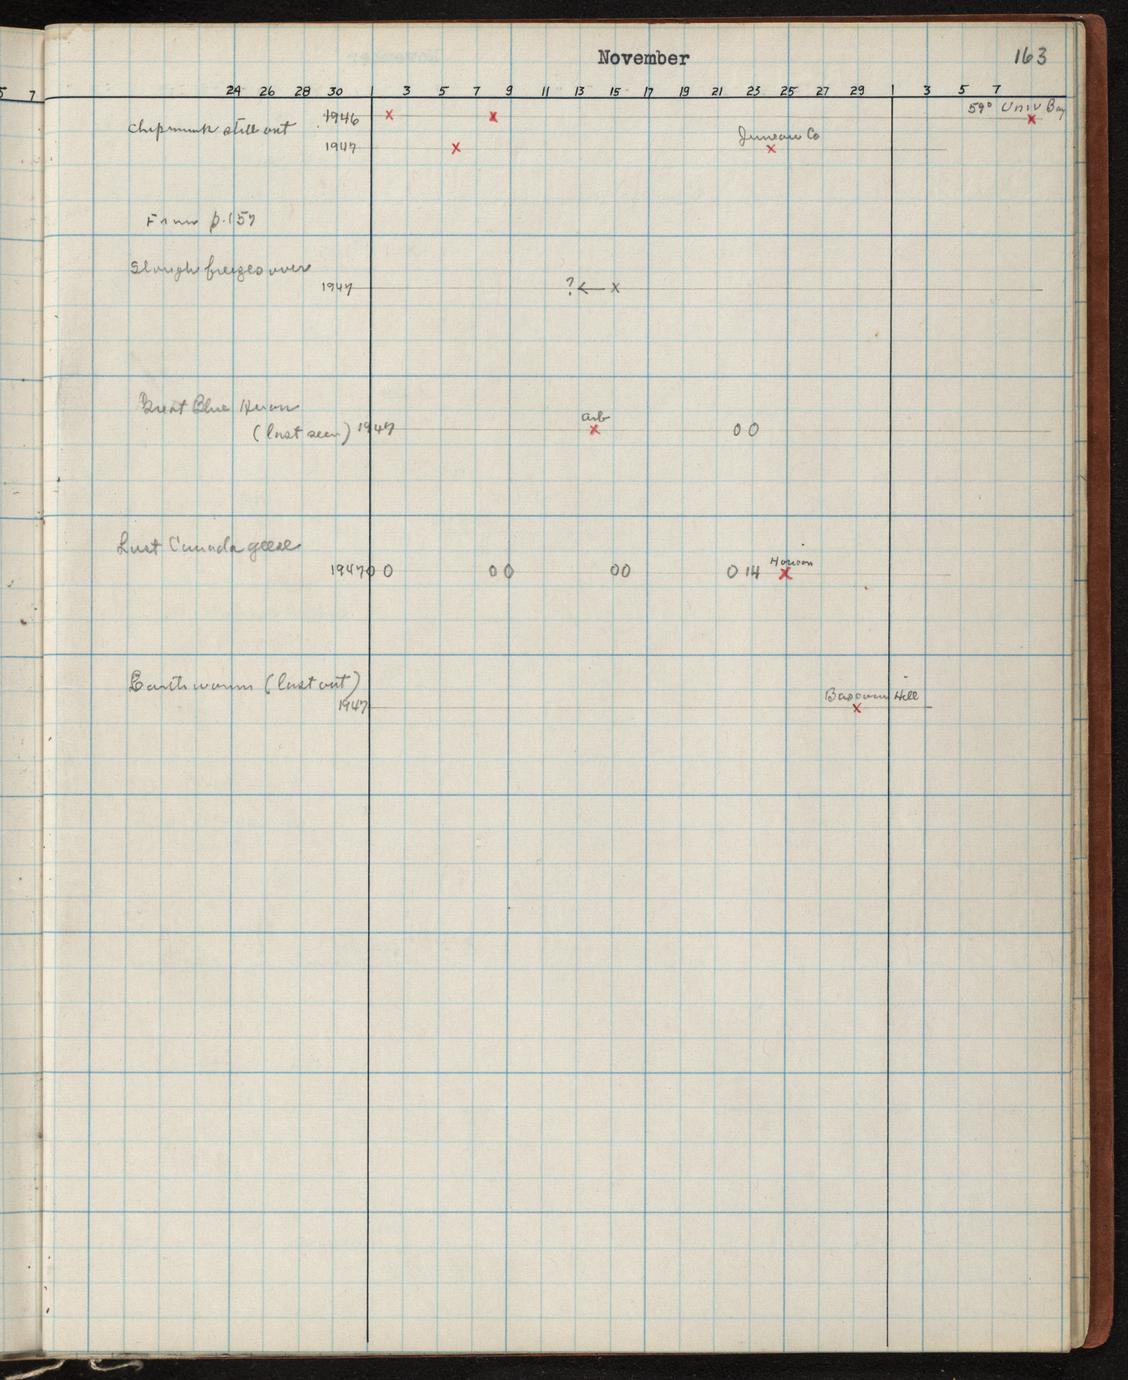 November 163
5 7 24 26 28 30 1 3 5 7 9 11 13 15 17 19 21 23 25 27 29 1 3 5 7
chipmunk still out 1946 x x 59° Univ Bay x
Juneau Co
1947 x x
From p.157
Slough freezes over
1947 ? ← x
Great Blue Heron
arb
(last seen) 1947 x 0 0
Last Canada geese
Horicon
1947 0 0 0 0 0 0 0 14 x
Earthworm (last out)
Bascom Hill
1947 x